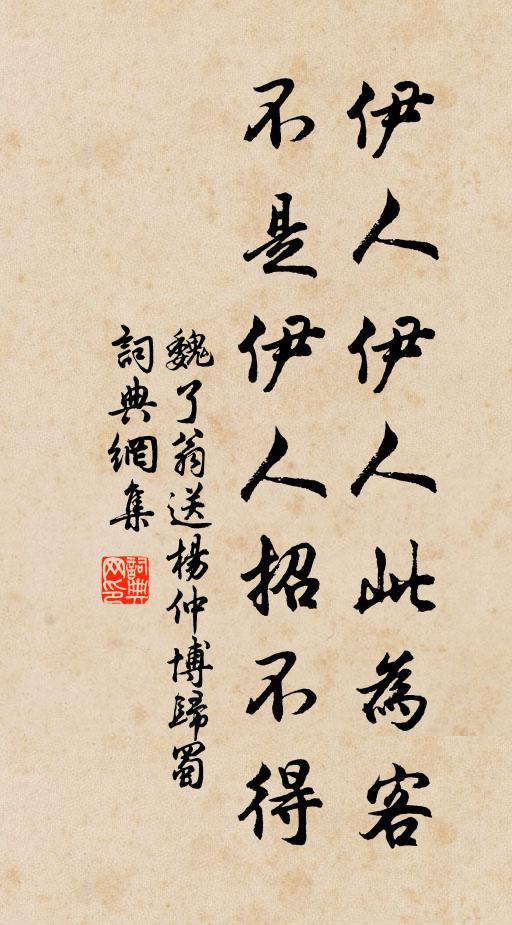 伊人伊人此為客
不是伊人招不得
魏了翁送楊仲博歸蜀
詞典網集
詞典網印